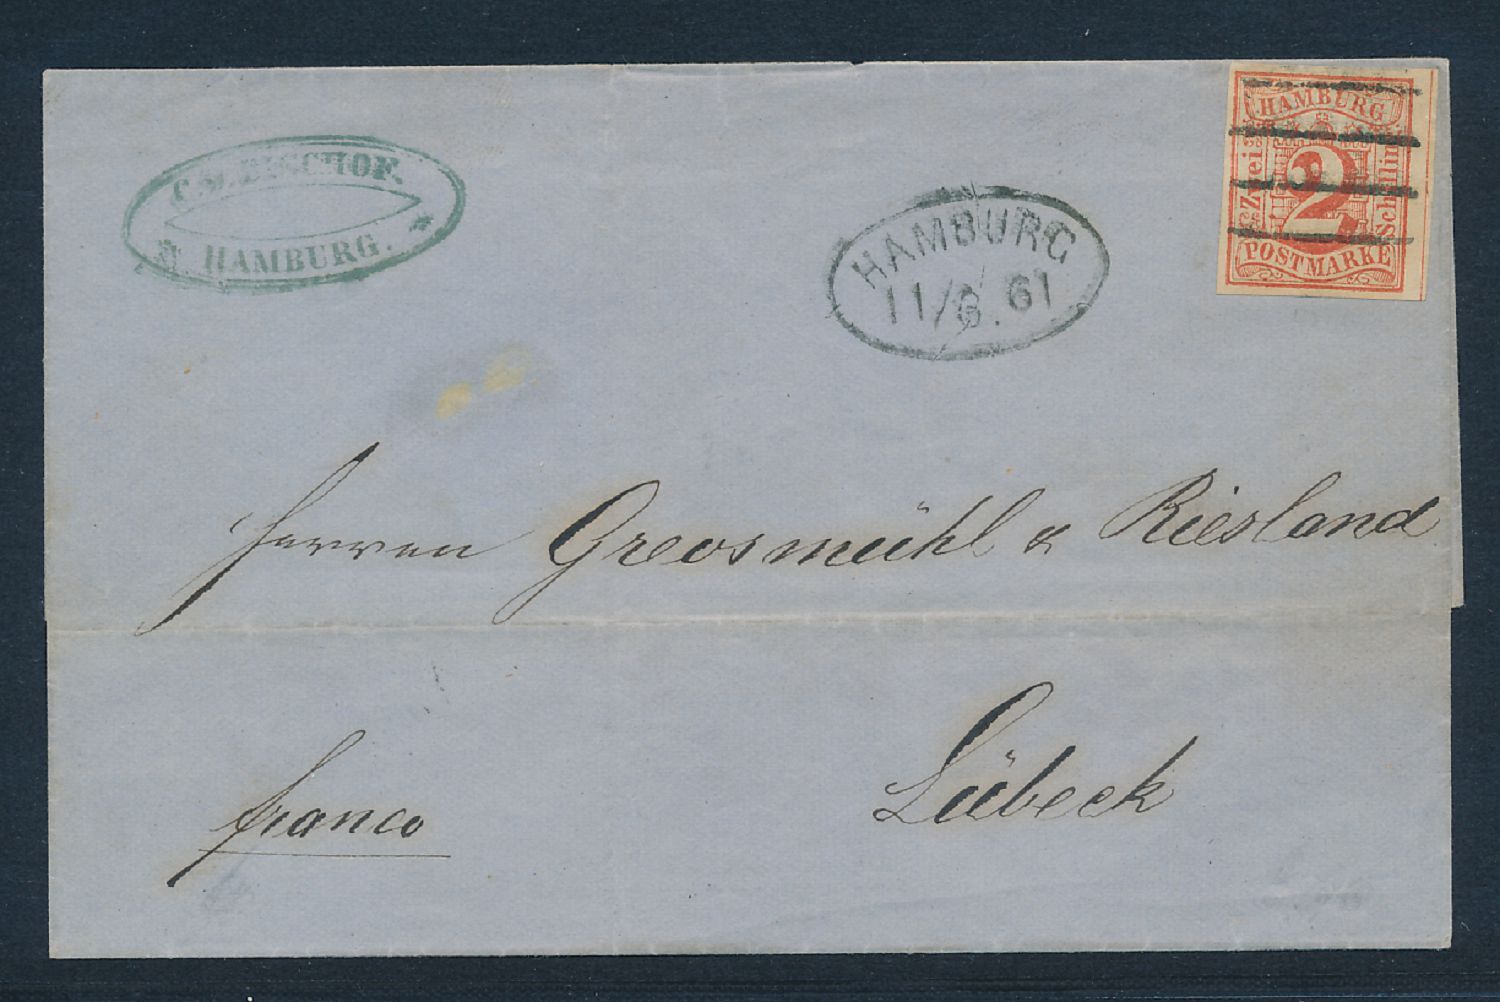 C. W. BISCHOF.
HAMBURG.
HAMBURG
11/6. 61
HAMBURG
Zwei
2
Schilling
POSTMARKE
Herren Grevsmühl & Riesland
Lübeck
franco